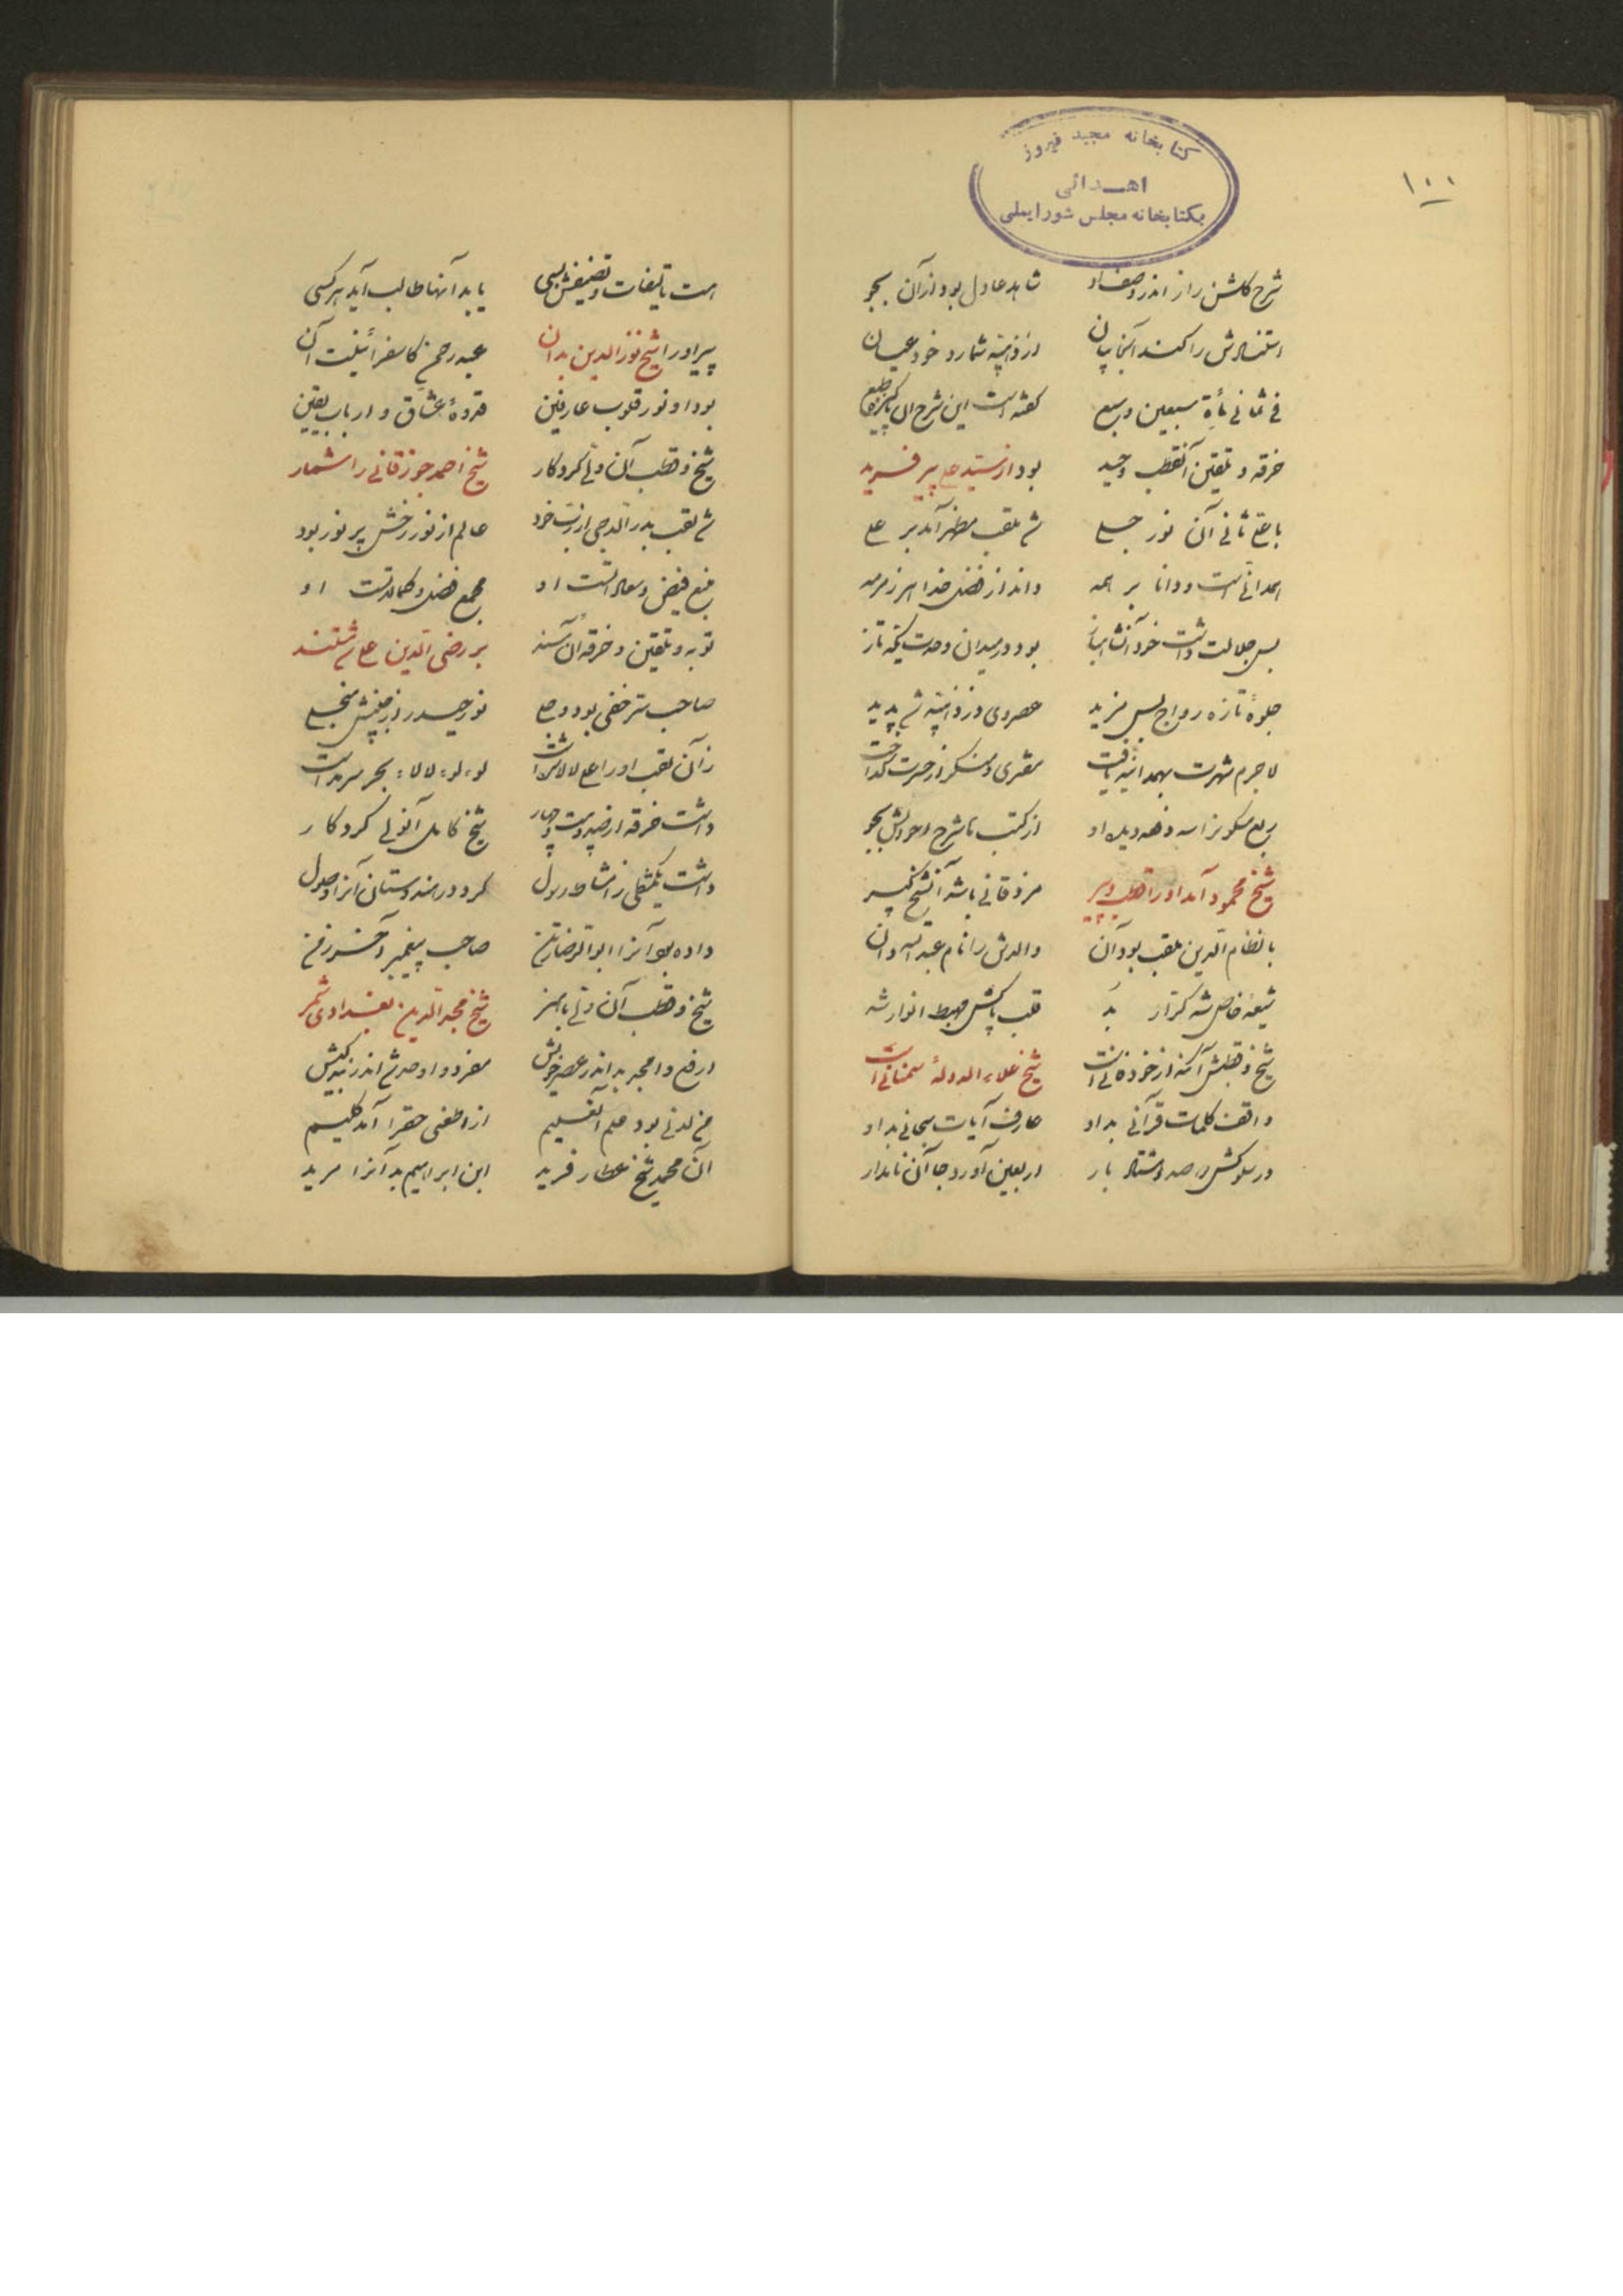 ۱۰۰
کتابخانه مجید فیروز
اهدائی
بکتابخانه مجلس شورایملی
شرح گلشن راز اندر وصف او شاهد عادل بود از آن بجو
را کند از ذهبیه شمارد خود عیان
فی ثمانی مأة سبعین و سبع گفته است این شرح آن
خرقه و تلقین آنقطب وحید بود از سید علی پیر فرید
با علی ثانی آن نور جلی شد ملقب مظهر آمد بر علی
همدانی است و دانا بر همه داند از فضل خدا هر زمزمه
بس جلالت داشت خود بود در میدان وحدت یکه تاز
جلوهٔ تازه رواج بس مزید عصر وی در ذهبیه شد پدید
لاجرم شهرت بهمدانیه یافت مفتری و منکر از حسرت گداخت
از کتب با شرح احوالش بجو
شیخ محمود آمد او را قطب و پیر مزدقانی باشد آنشیخ کبیر
با نظام الدین ملقب بود آن والدش را نام عبدالله دان
شیعهٔ خاص شه کرار بد قلب پاکش مهبط انوار شد
شیخ و قطبش آنکه از خود فانی است شیخ علاء الدولهٔ سمنانی است
واقف کلمات قرآنی بد او عارف آیات سبحانی بد او
در سلوکش صد و هشتاد بار اربعین آورد جا آن نامدار
هست تألیفات و تصنیفش بسی یابد آنها طالب آید هر کسی
پیر او را شیخ نورالدین بدان عبد رحمن کاسفرائنیست آن
بود او نور قلوب عارفین قدوهٔ عشاق و ارباب یقین
شیخ و قطب آن ولی کردکار شیخ احمد جوزقانی را شمار
شد لقب بدر الدجی از رب خود عالم از نور رخش پر نور بود
منبع فیض و سعادتست او مجمع فضل و کمالاتست او
توبه و تلقین و خرقه آن سند بر رضی الدین علی شد مستند
صاحب سر خفی بود و جلی نور حیدر از جبینش منجلی
زآن لقب او را علی لالا شداست لؤلؤ لالاء بحر سرمداست
داشت خرقه از صد و بیست و چهار شیخ کامل آنولی کردکار
داشت یکشکلی ز امشاط رسول کرد در هندوستان آنرا وصول
داده بود آنرا ابوالرضا رتن صاحب پیغمبر آخر زمن
شیخ و قطب آن ولی با هنر شیخ مجدالدین بغدادی شمر
ارفع و امجد بد اندر عصر خویش مفرد و اوحد شد اندر زهد و کیش
من لدنی بود علم آنعلیم از اطغی حقرا آمد کلیم
آن محمد شیخ عطار فرید ابن ابراهیم بد آنرا مرید